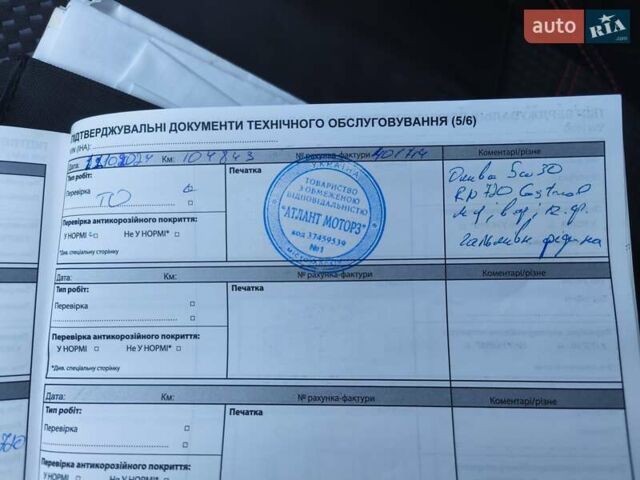 auto RIA.com
ПІДТВЕРДЖУВАЛЬНІ ДОКУМЕНТИ ТЕХНІЧНОГО ОБСЛУГОВУВАННЯ (5/6)
VIN (ІНА):
Дата: Км: 104843 № рахунка-фактури Коментарі/різне
Тип робіт: Печатка
ТО
Перевірка антикорозійного покриття:
У НОРМІ Не У НОРМІ*
*Див. спеціальну сторінку
УКРАЇНА
ТОВАРИСТВО
З ОБМЕЖЕНОЮ
ВІДПОВІДАЛЬНІСТЮ
"АТЛАНТ МОТОРЗ"
код 37459539
№1
Олива 5w30
RN720 Castrol
Дата: Км: № рахунка-фактури Коментарі/різне
Тип робіт: Печатка
Перевірка
Перевірка антикорозійного покриття:
У НОРМІ Не У НОРМІ*
*Див. спеціальну сторінку
Дата: Км: № рахунка-фактури Коментарі/різне
Тип робіт: Печатка
Перевірка
Перевірка антикорозійного покриття: